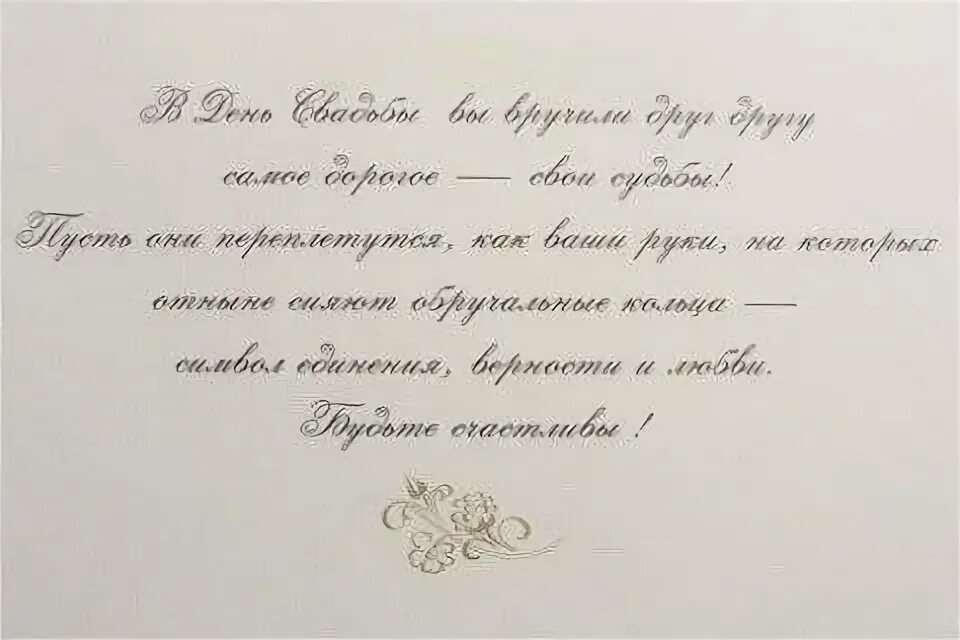 В День Свадьбы вы вручили друг другу
самое дорогое — свои судьбы!
Пусть они переплетутся, как ваши руки, на которых
отныне сияют обручальные кольца —
символ единения, верности и любви.
Будьте счастливы!